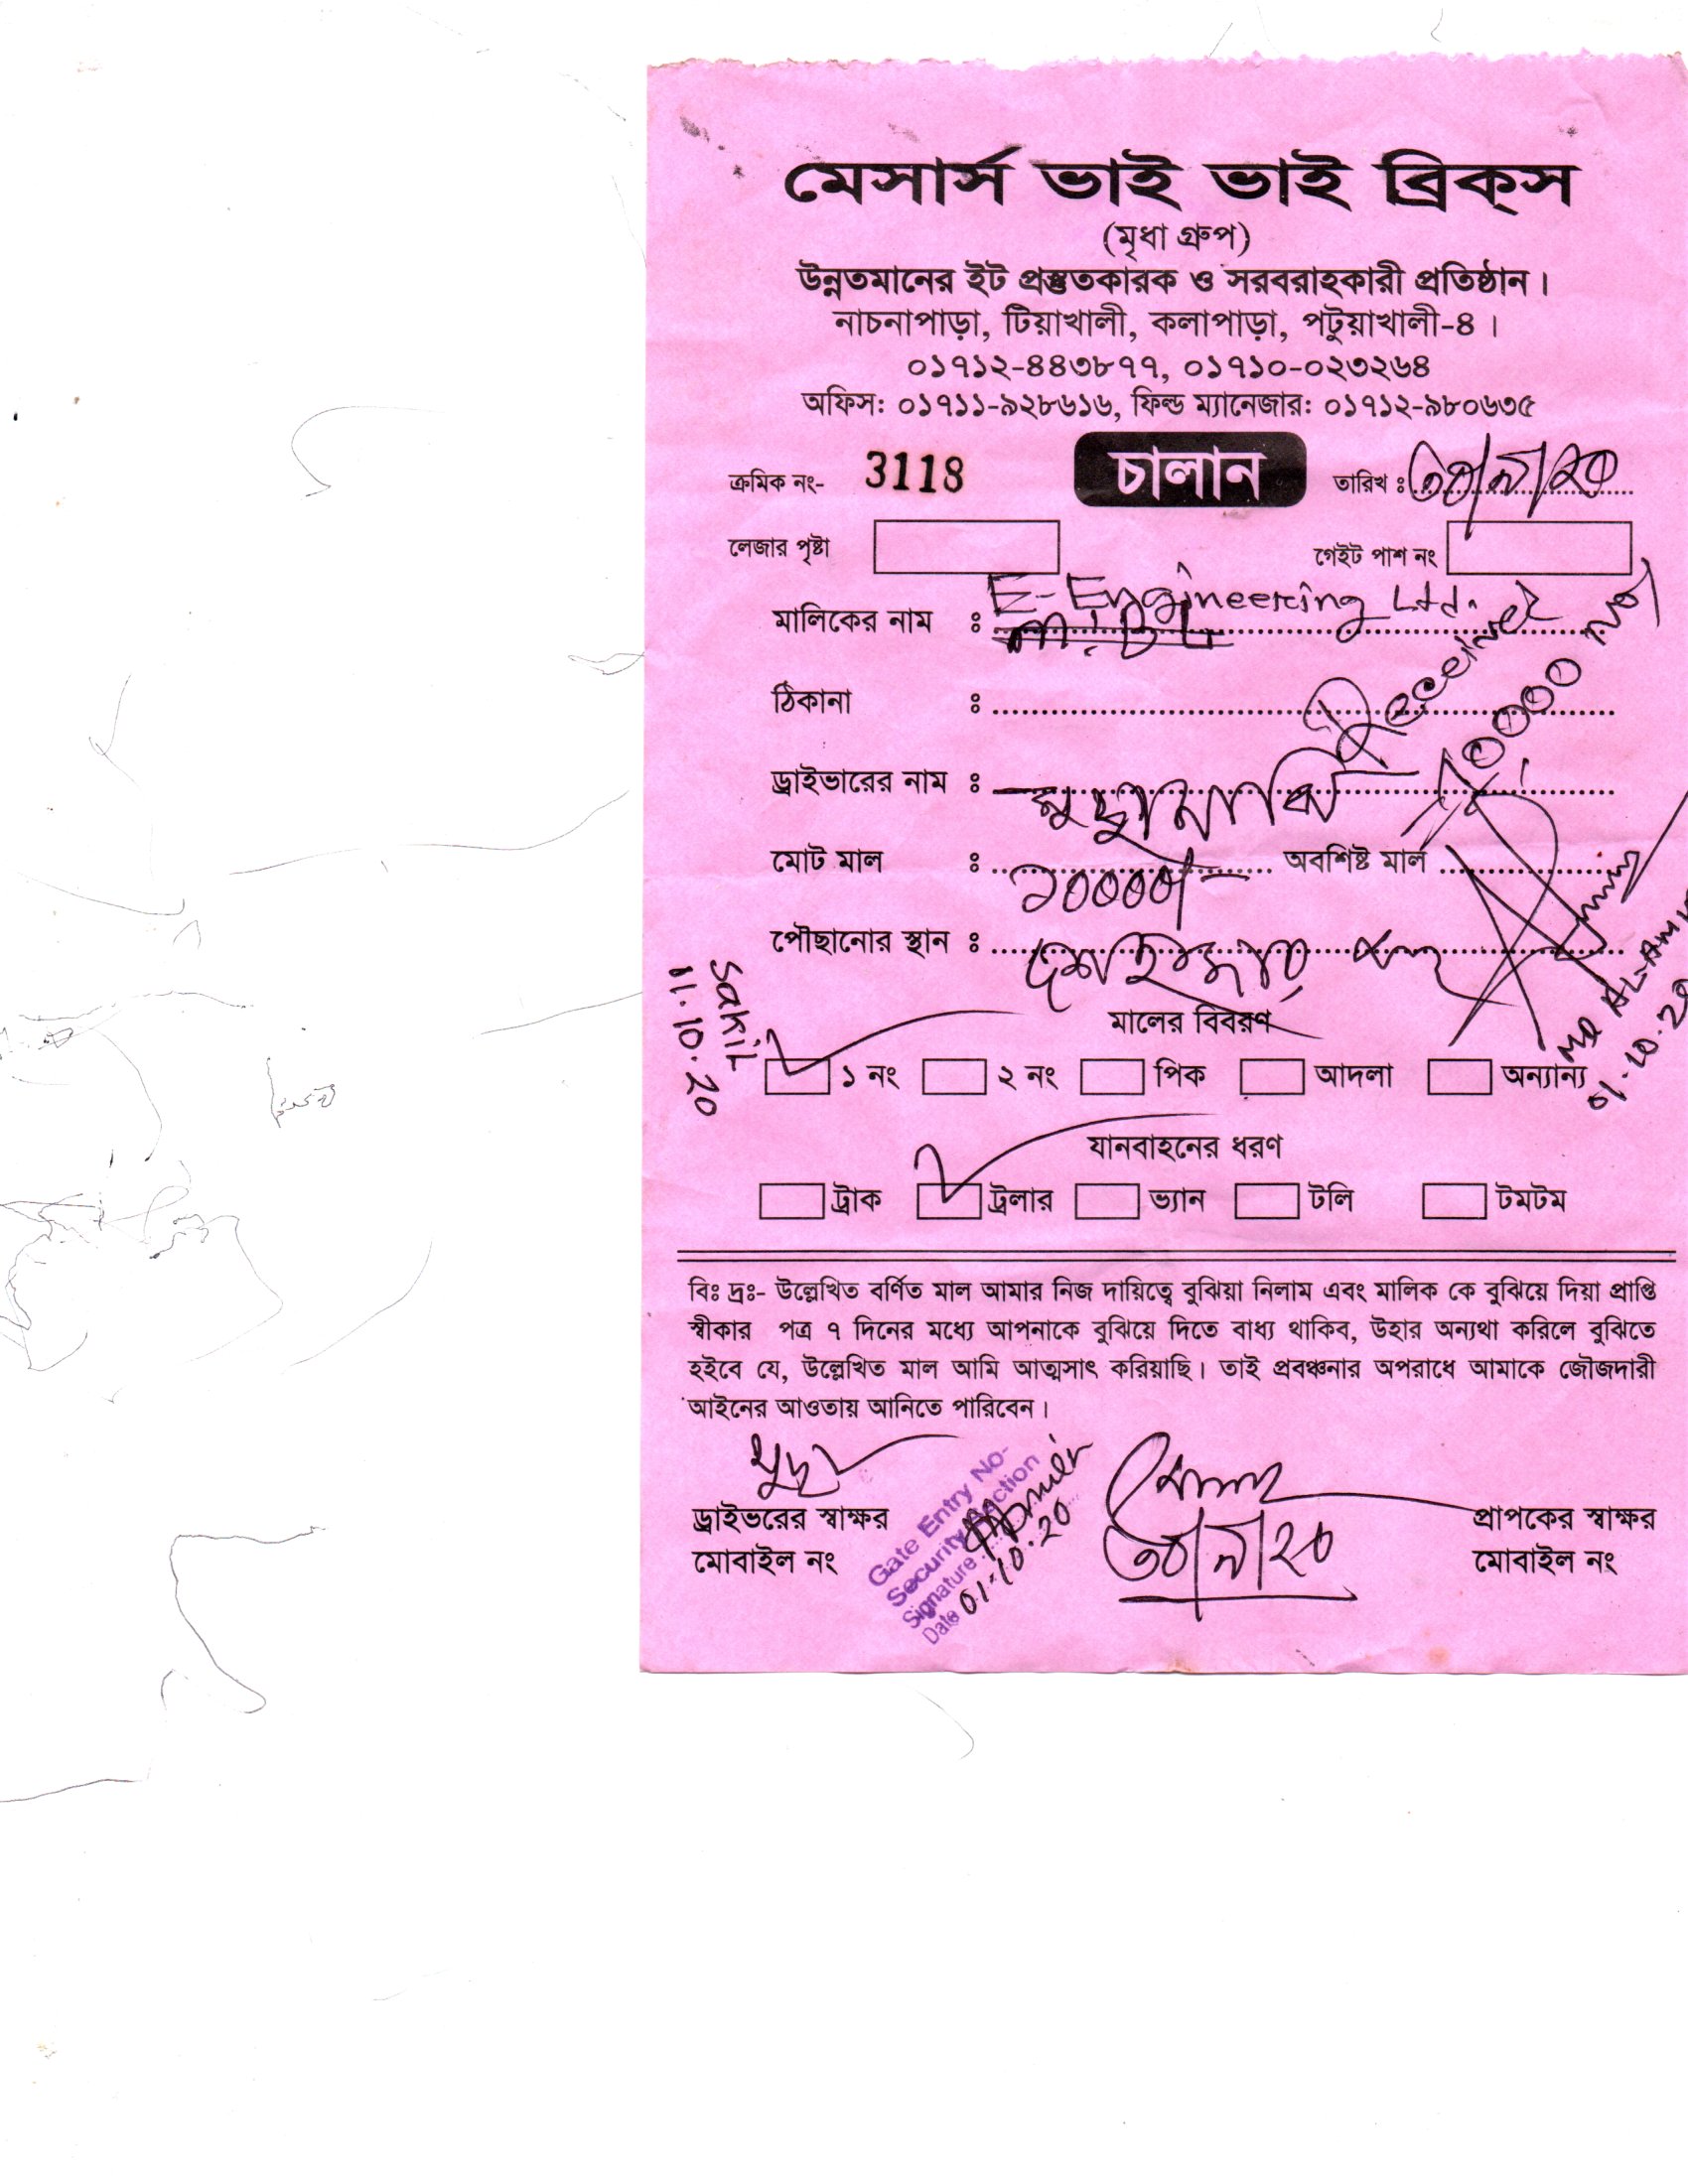 মেসার্স ভাই ভাই ব্রিক্‌স
(মৃধা গ্রুপ)
উন্নতমানের ইট প্রস্তুতকারক ও সরবরাহকারী প্রতিষ্ঠান।
নাচনাপাড়া, টিয়াখালী, কলাপাড়া, পটুয়াখালী-৪।
০১৭১২-৪৪৩৮৭৭, ০১৭১০-০২৩২৬৪
অফিস: ০১৭১১-৯২৮৬১৬, ফিল্ড ম্যানেজার: ০১৭১২-৯৮০৬৩৫
ক্রমিক নং- 3118 চালান তারিখ : ৩০/৯/২০
লেজার পৃষ্টা গেইট পাশ নং
মালিকের নাম : E-Engineering Ltd.
ঠিকানা :
Received
10000 nos
ড্রাইভারের নাম : মুছা মাঝি
মোট মাল : ১০০০০/- অবশিষ্ট মাল
পৌছানোর স্থান : দশ হাজার
Md AL-Amin
01.10.20
Sakil
11.10.20
মালের বিবরণ
১ নং ২ নং পিক আদলা অন্যান্য
যানবাহনের ধরণ
ট্রাক ট্রলার ভ্যান টলি টমটম
বিঃ দ্রঃ- উল্লেখিত বর্ণিত মাল আমার নিজ দায়িত্বে বুঝিয়া নিলাম এবং মালিক কে বুঝিয়ে দিয়া প্রাপ্তি
স্বীকার পত্র ৭ দিনের মধ্যে আপনাকে বুঝিয়ে দিতে বাধ্য থাকিব, উহার অন্যথা করিলে বুঝিতে
হইবে যে, উল্লেখিত মাল আমি আত্মসাৎ করিয়াছি। তাই প্রবঞ্চনার অপরাধে আমাকে জৌজদারী
আইনের আওতায় আনিতে পারিবেন।
মুছা
ড্রাইভরের স্বাক্ষর
মোবাইল নং
Gate Entry No-
Security Section
Signature
Date 01.10.20
৩০/৯/২০
প্রাপকের স্বাক্ষর
মোবাইল নং